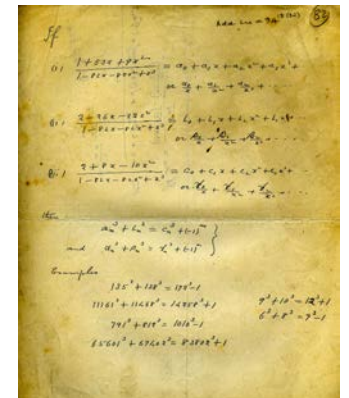 82
If
(i) (1+53x+9x²)/(1-82x-82x²+x³) = a₀ + a₁x + a₂x² + a₃x³ + ...
or α₀/x + α₁/x² + α₂/x³ + ...
(ii) (2-26x-12x²)/(1-82x-82x²+x³) = b₀ + b₁x + b₂x² + b₃x³ + ...
or β₀/x + β₁/x² + β₂/x³ + ...
(iii) (2+8x-10x²)/(1-82x-82x²+x³) = c₀ + c₁x + c₂x² + c₃x³ + ...
or γ₀/x + γ₁/x² + γ₂/x³ + ...
then
aₙ³ + bₙ³ = cₙ³ + (-1)ⁿ
and αₙ³ + βₙ³ = γₙ³ + (-1)ⁿ }
Examples
135³ + 138³ = 172³ - 1
11161³ + 11468³ = 14258³ + 1
9³ + 10³ = 12³ + 1
791³ + 812³ = 1010³ - 1
6³ + 8³ = 9³ - 1
65601³ + 67402³ = 83802³ + 1